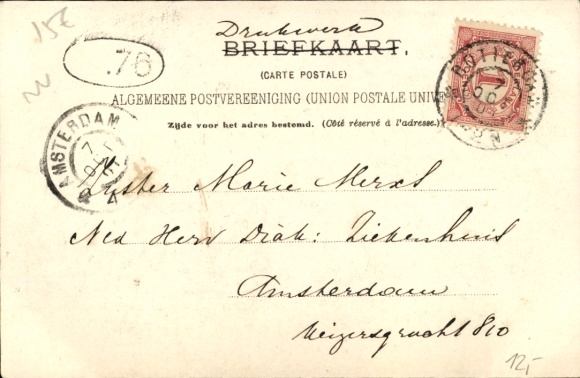 15€
Drukwerk
BRIEFKAART.
.76
(CARTE POSTALE)
ALGEMEENE POSTVEREENIGING (UNION POSTALE UNIVE
Zijde voor het adres bestemd. (Côté réservé à l'adresse.)
ROTTERDAM
AMSTERDAM
7
OCT
4
1
Zuster Marie Merxs
Ned Herv Diak: Ziekenhuis
Amsterdam
Keizersgracht 810
12,-